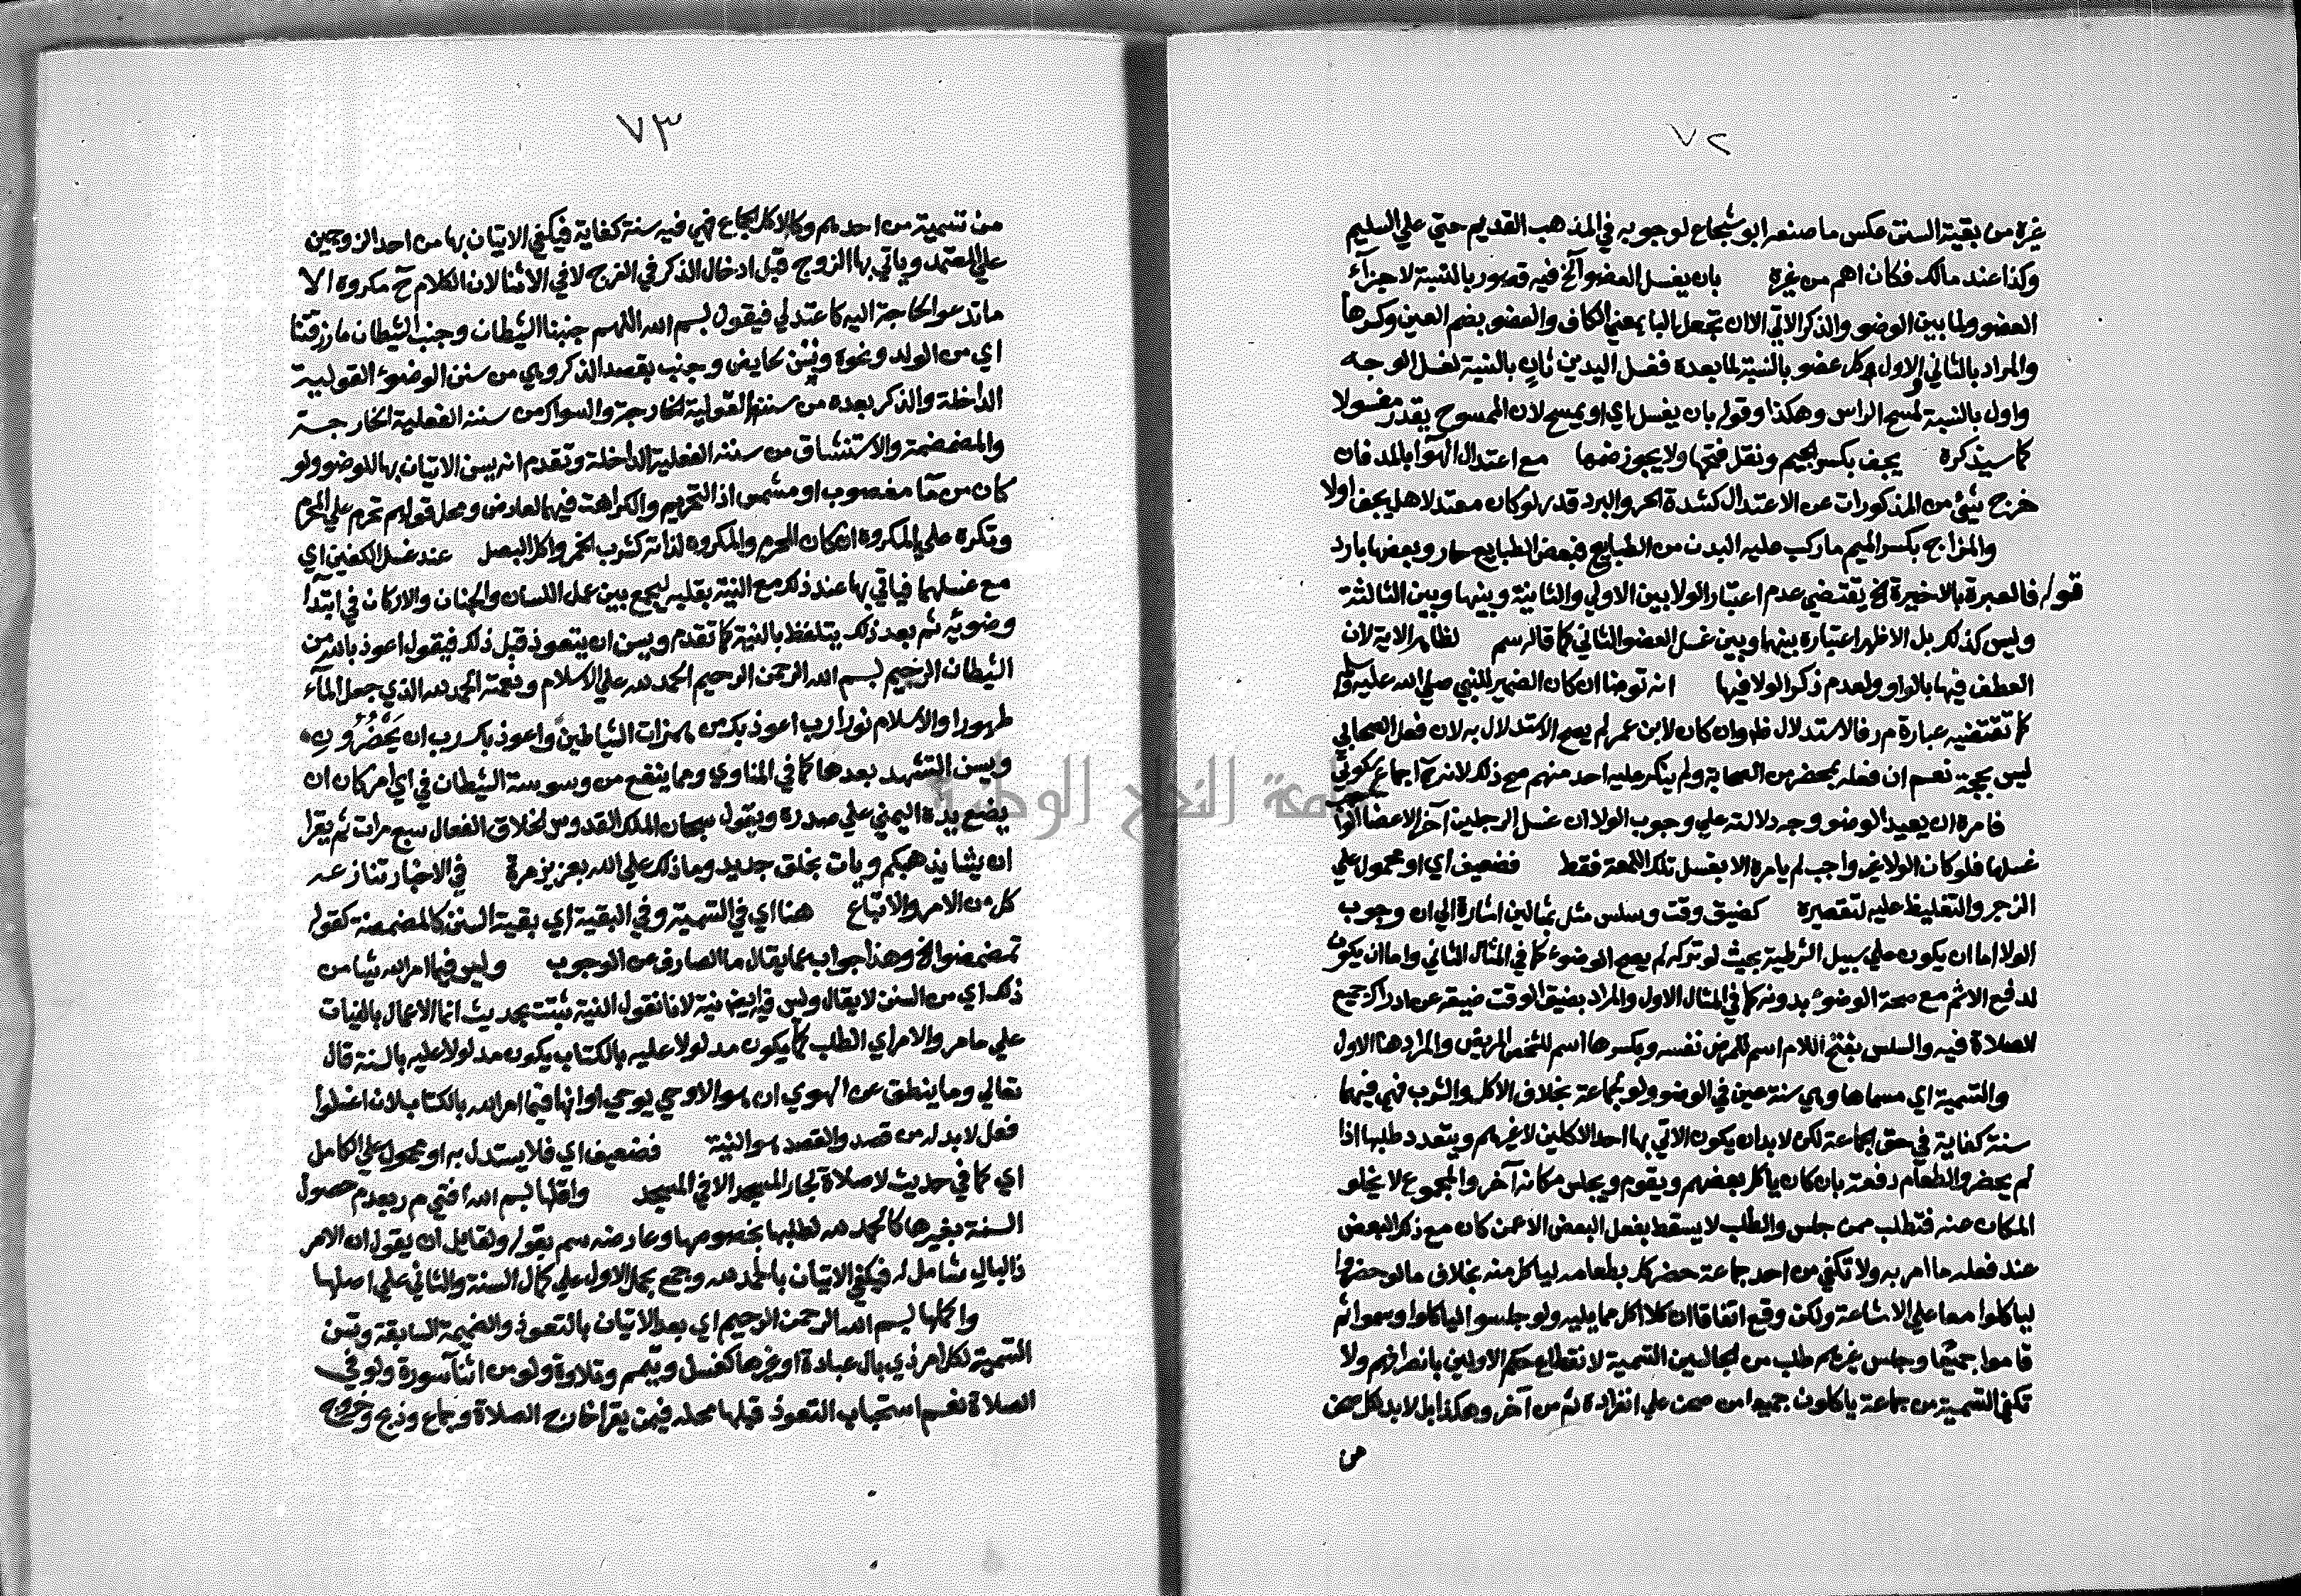 ٧٢
غيره من بقية السنن عكس ما صنعه ابو شجاع لوجوبه في المذهب القديم حتي علي السليم
وكذا عند مالك فكان اهم من غيره بان يغسل العضو الخ فيه قصور بالنسبة لاجزآء
العضو ولما بين الوضو والذكر الاتي الا ان تجعل البا بمعني الكاف والعضو بضم العين وكسرها
والمراد بالثاني والاول كل عضو بالنسبة لما بعده فغسل اليدين ثان بالنسبة لغسل الوجه
واول بالنسبة لمسح الراس وهكذا وقوله بان يغسل اي او يمسح لان الممسوح يقدر مغسولا
كما سيذكره يجف بكسر الجيم ونقل فتحها ولا يجوز ضمها مع اعتدال الهوآ بالمد فان
خرج شئ من المذكورات عن الاعتدال كشدة الحر والبرد قدر لو كان معتدلا هل يجف اولا
والمزاج بكسر الميم ما ركب عليه البدن من الطبايع فبعض الطبايع حار وبعضها بارد
قوله فالعبرة بالاخيرة الخ يقتضي عدم اعتبار الولا بين الاولي والثانية وبينها وبين الثالثة
وليس كذلك بل الاظهر اعتباره بينها وبين غسل العضو الثاني كما قاله سم لظاهر الاية لان
العطف فيها بالواو ولعدم ذكر الولا فيها انه توضا ان كان الضمير للنبي صلي الله عليه وسلم
كما تقتضيه عبارة م ر فالاستدلال ظهر وان كان لابن عمر لم يصح الاستدلال به لان فعل الصحابي
ليس بحجة نعم ان فعله بمحضر من الصحابة ولم ينكر عليه احد منهم صح ذلك لانه ح اجماع سكوتي
فامره ان يعيد الوضو وجه دلالته علي وجوب الولا ان غسل الرجلين آخر الاعضا الواجب
غسلها فلو كان الولا غير واجب لم يامره الا بغسل تلك اللمعة فقط فضعيف اي او محمول علي
الزجر والتغليظ عليه لتقصيره كضيق وقت وسلس مثل بمثالين اشارة الي ان وجوب
الولا اما ان يكون علي سبيل الشرطية بحيث لو تركه لم يصح الوضوء كما في المثال الثاني واما ان يكون
لدفع الاثم مع صحة الوضوء بدونه كما في المثال الاول والمراد بضيق الوقت ضيقه عن ادراك جميع
الصلاة فيه والسلس بفتح اللام اسم للمرض نفسه وبكسرها اسم للشخص المريض والمراد هنا الاول
والتسمية اي مسماها وهي سنة عين في الوضو ولو لجماعة بخلاف الاكل والشرب فهي فيهما
سنة كفاية في حق الجماعة لكن لا بد ان يكون الاتي بها احد الاكلين لا غيرهم ويتعدد طلبها اذا
لم يحضروا الطعام دفعة بان كان ياكل بعضهم ويقوم ويجلس مكانه آخر والمجموع لا يخلو
المكان عنه فتطلب ممن جلس والطلب لا يسقط بفعل البعض الا عمن كان مع ذلك البعض
عند فعله ما امر به ولا تكفي من احد جماعة حضر كل بطعامه لياكل منه بخلاف ما لو حضروا
لياكلوا معا علي الاشاعة ولكن وقع اتفاقا ان كلا اكل مما يليه ولو جلسوا لياكلوا وسموا ثم
قاموا جميعا وجلس غيرهم طلب من الجالسين التسمية لانقطاع حكم الاولين بانصرافهم ولا
تكفي التسمية من جماعة ياكلون جميعا من صحن علي انفراده ثم من آخر وهكذا بل لا بد لكل صحن
من
٧٣
من تسمية من احدهم وكالاكل الجماع فهي فيه سنة كفاية فيكفي الاتيان بها من احد الزوجين
علي المعتمد وياتي بها الزوج قبل ادخال الذكر في الفرج لا في الاثنا لان الكلام ح مكروه الا
ما تدعوا الحاجة اليه كاعتدلي فيقول بسم الله اللهم جنبنا الشيطان وجنب الشيطان ما رزقتنا
اي من الولد ونحوه وتسن لحايض وجنب بقصد الذكر وهي من سنن الوضوء القولية
الداخلة والذكر بعده من سننه القولية الخارجة والسواك من سننه الفعلية الخارجة
والمضمضة والاستنشاق من سننه الفعلية الداخلة وتقدم انه يسن الاتيان بها للوضو ولو
كان من مآ مغصوب او مشمس اذ التحريم والكراهة فيهما لعارض ومحل قولهم تحرم علي المحرم
وتكره علي المكروه ان كان المحرم والمكروه لذاته كشرب الخمر واكل البصل عند غسل الكفين اي
مع غسلهما فياتي بها عند ذلك مع النية بقلبه ليجمع بين عمل اللسان والجنان والاركان في ابتدآ
وضوئه ثم بعد ذلك يتلفظ بالنية كما تقدم ويسن ان يتعوذ قبل ذلك فيقول اعوذ بالله من
الشيطان الرجيم بسم الله الرحمن الرحيم الحمد لله علي الاسلام ونعمته الحمد لله الذي جعل المآء
طهورا والاسلام نورا رب اعوذ بك من همزات الشياطين واعوذ بك رب ان يَحْضُرُونِ
ويسن التشهد بعدها كما في المناوي ومما ينفع من وسوسة الشيطان في اي امر كان ان
يضع يده اليمني علي صدره ويقول سبحان الملك القدوس الخلاق الفعال سبع مرات ثم يقرا
ان يشا يذهبكم ويات بخلق جديد وما ذلك علي الله بعزيز مرة في الاخبار تنازعه
كل من الامر والاتباع هنا اي في التسمية وفي البقية اي بقية السنن كالمضمضة كقوله
تمضمضوا الخ وهذا جواب عما يقال ما الصارف عن الوجوب وليس فيما امر الله شيا من
ذلك اي من السنن لا يقال وليس فيه ايضا نية لانا نقول النية ثبتت بحديث انما الاعمال بالنيات
علي ما مر والامر اي الطلب كما يكون مدلولا عليه بالكتاب يكون مدلولا عليه بالسنة قال
تعالي وما ينطق عن الهوي ان هو الا وحي يوحي او انها فيما امر الله بالكتاب لان اغسلوا
فعل لا بد له من قصد والقصد هو النية فضعيف اي فلا يستدل به او محمول علي الكامل
اي كما في حديث لا صلاة لجار المسجد الا في المسجد واقلها بسم الله افتي م ر بعدم حصول
السنة بغيرها كالحمد لله لطلبها بخصوصها وعارضه سم بقوله ولقايل ان يقول ان الامر
ذا البال شامل له فيكفي الاتيان بالحمد لله وجمع بحمل الاول علي كمال السنة والثاني علي اصلها
واكملها بسم الله الرحمن الرحيم اي بعد الاتيان بالتعوذ والضميمة السابقة وتسن
التسمية لكل امر ذي بال عبادة او غيرها كغسل وتيمم وتلاوة ولو من اثنآ سورة ولو في
الصلاة نعم استحباب التعوذ قبلها محله فيمن يقرا خارج الصلاة وجماع وذبح وخروج
جامعة النجاح الوطنية